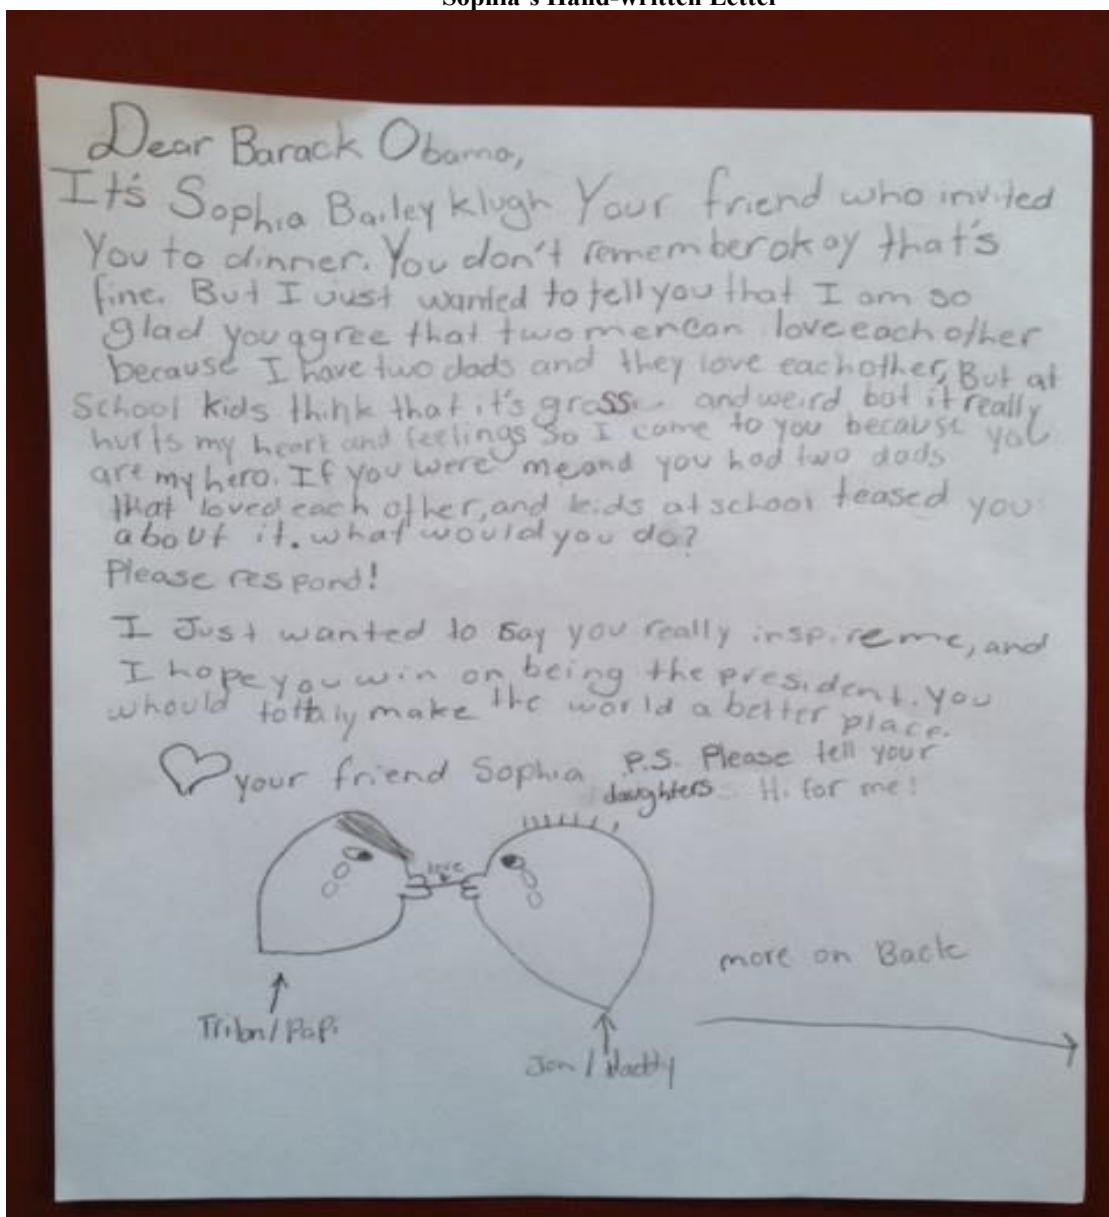 Sophia's Hand-written Letter
Dear Barack Obama,
It's Sophia Bailey klugh Your friend who invited
You to dinner. You don't remember okay that's
fine. But I Just wanted to tell you that I am so
glad you agree that two men can love each other
because I have two dads and they love each other, But at
School kids think that it's gross and weird but it really
hurts my heart and feelings So I come to you because you
are my hero. If you were me and you had two dads
that loved each other, and kids at school teased you
about it. what would you do?
Please respond!
I Just wanted to say you really inspire me, and
I hope you win on being the president. you
whould tottaly make the world a better place.
your friend Sophia P.S. Please tell your
daughters Hi for me!
love
more on Back
/ Papi
Jon / Daddy